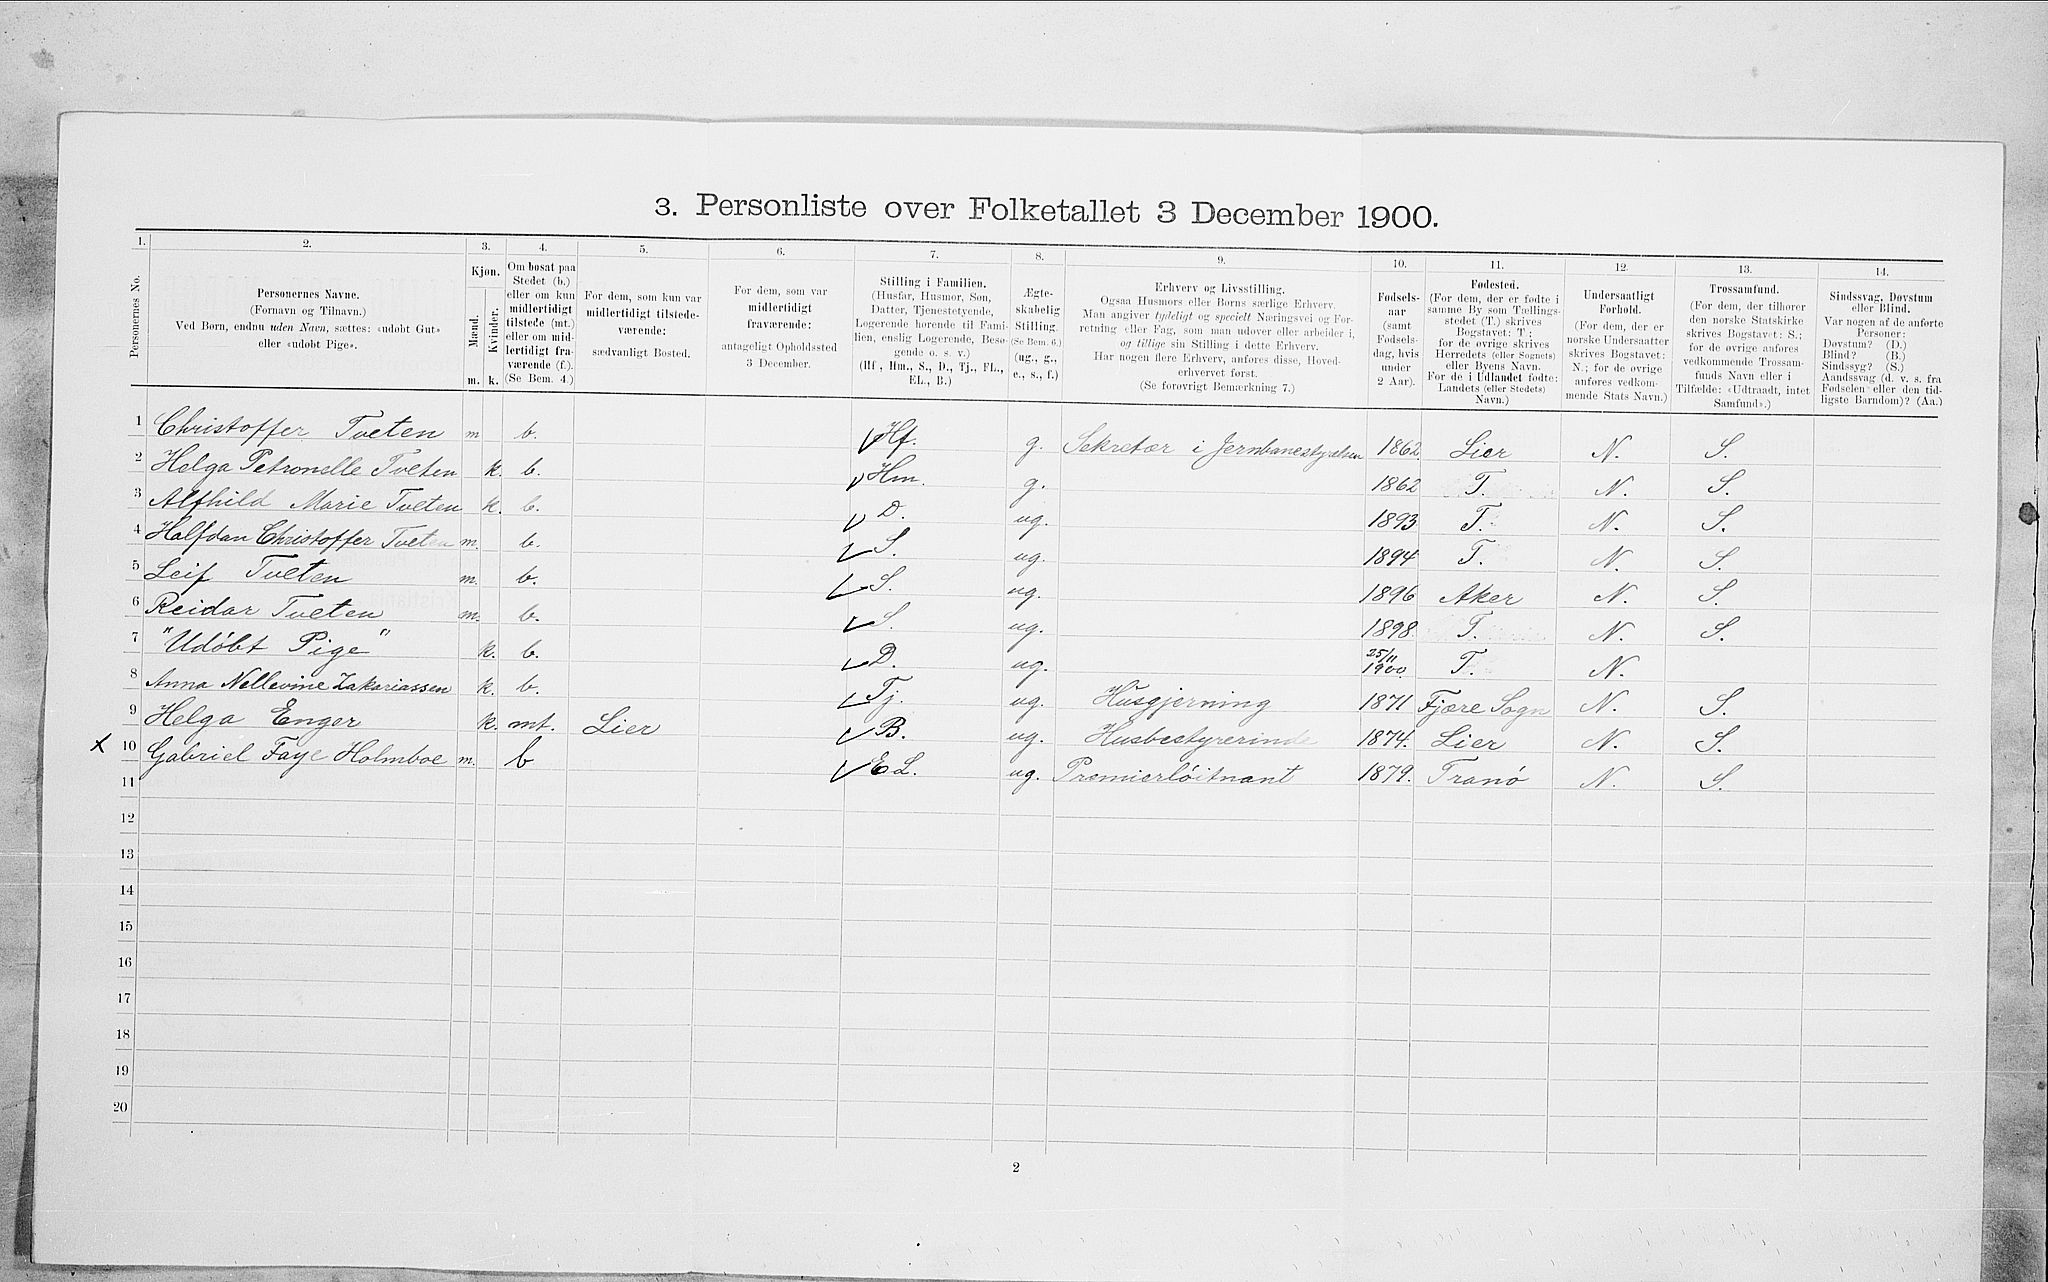 3. Personliste over Folketallet 3 December 1900.
1. 2. 3. 4. 5. 6. 7. 8. 9. 10. 11. 12. 13. 14.
Personernes No.
Personernes Navne.
(Fornavn og Tilnavn.)
Ved Børn, endnu uden Navn, sættes: «udøbt Gut»
eller «udøbt Pige».
Kjøn.
Mænd.
Kvinder.
m. k.
Om bosat paa
Stedet (b.)
eller om kun
midlertidigt
tilstede (mt.)
eller om mid-
lertidigt fra-
værende (f.).
(Se Bem. 4.)
For dem, som kun var
midlertidigt tilstede-
værende:
sædvanligt Bosted.
For dem, som var
midlertidigt
fraværende:
antageligt Opholdssted
3 December.
Stilling i Familien.
(Husfar, Husmor, Søn,
Datter, Tjenestetyende,
Logerende hørende til Fami-
lien, enslig Logerende, Besø-
gende o. s. v.)
(Hf., Hm., S., D., Tj., FL.,
EL., B.)
Ægte-
skabelig
Stilling.
(Se Bem. 6.)
(ug., g.,
e., s., f.)
Erhverv og Livsstilling.
Ogsaa Husmors eller Børns særlige Erhverv.
Man angiver tydeligt og specielt Næringsvei og For-
retning eller Fag, som man udøver eller arbeider i,
og tillige sin Stilling i dette Erhverv.
Har nogen flere Erhverv, anføres disse, Hoved-
erhvervet først.
(Se forøvrigt Bemærkning 7.)
Fødsels-
aar
(samt
Fødsels-
dag, hvis
under
2 Aar).
Fødested.
(For dem, der er fødte i
samme By som Tællings-
stedet (T.) skrives
Bogstavet: T.;
for de øvrige skrives
Herredets (eller Sognets)
eller Byens Navn.
For de i Udlandet fødte:
Landets (eller Stedets)
Navn.)
Undersaatligt
Forhold.
(For dem, der er
norske Undersaatter
skrives Bogstavet:
N.; for de øvrige
anføres vedkom-
mende Stats Navn.)
Trossamfund.
(For dem, der tilhører
den norske Statskirke
skrives Bogstavet: S.;
for de øvrige anføres
vedkommende Trossam-
funds Navn eller i
Tilfælde: «Udtraadt, intet
Samfund».)
Sindssvag, Døvstum
eller Blind.
Var nogen af de anførte
Personer:
Døvstum? (D.)
Blind? (B.)
Sindssyg? (S.)
Aandssvag (d. v. s. fra
Fødselen eller den tid-
ligste Barndom)? (Aa.)
1 Christoffer Tveten m b. Hf. g. Sekretær i Jernbanestyrelsen 1862. Lier N. S.
2 Helga Petronelle Tveten k. b. Hm. g. 1862 T. N. S.
3 Alfhild Marie Tveten k. b. D. ug. 1893 T. N. S.
4 Halfdan Christoffer Tveten m. b. S. ug. 1894 T. N. S.
5 Leif Tveten m. b. S. ug. 1896 Aker N. S.
6 Reidar Tveten m. b. S. ug. 1898. T. N. S.
7 "Udøbt Pige" k. b. D. ug. 25/11 1900. T. N.
8 Anna Nellevine Zakariassen k. b. Tj. ug. Husgjerning 1871 Fjære Sogn N. S.
9 Helga Enger k. mt. Lier B. ug. Husbestyrerinde 1874. Lier N. S.
x 10 Gabriel Faye Holmboe m. b E L. ug. Premierløitnant 1879. Tranø N. S.
11
12
13
14
15
16
17
18
19
20
2